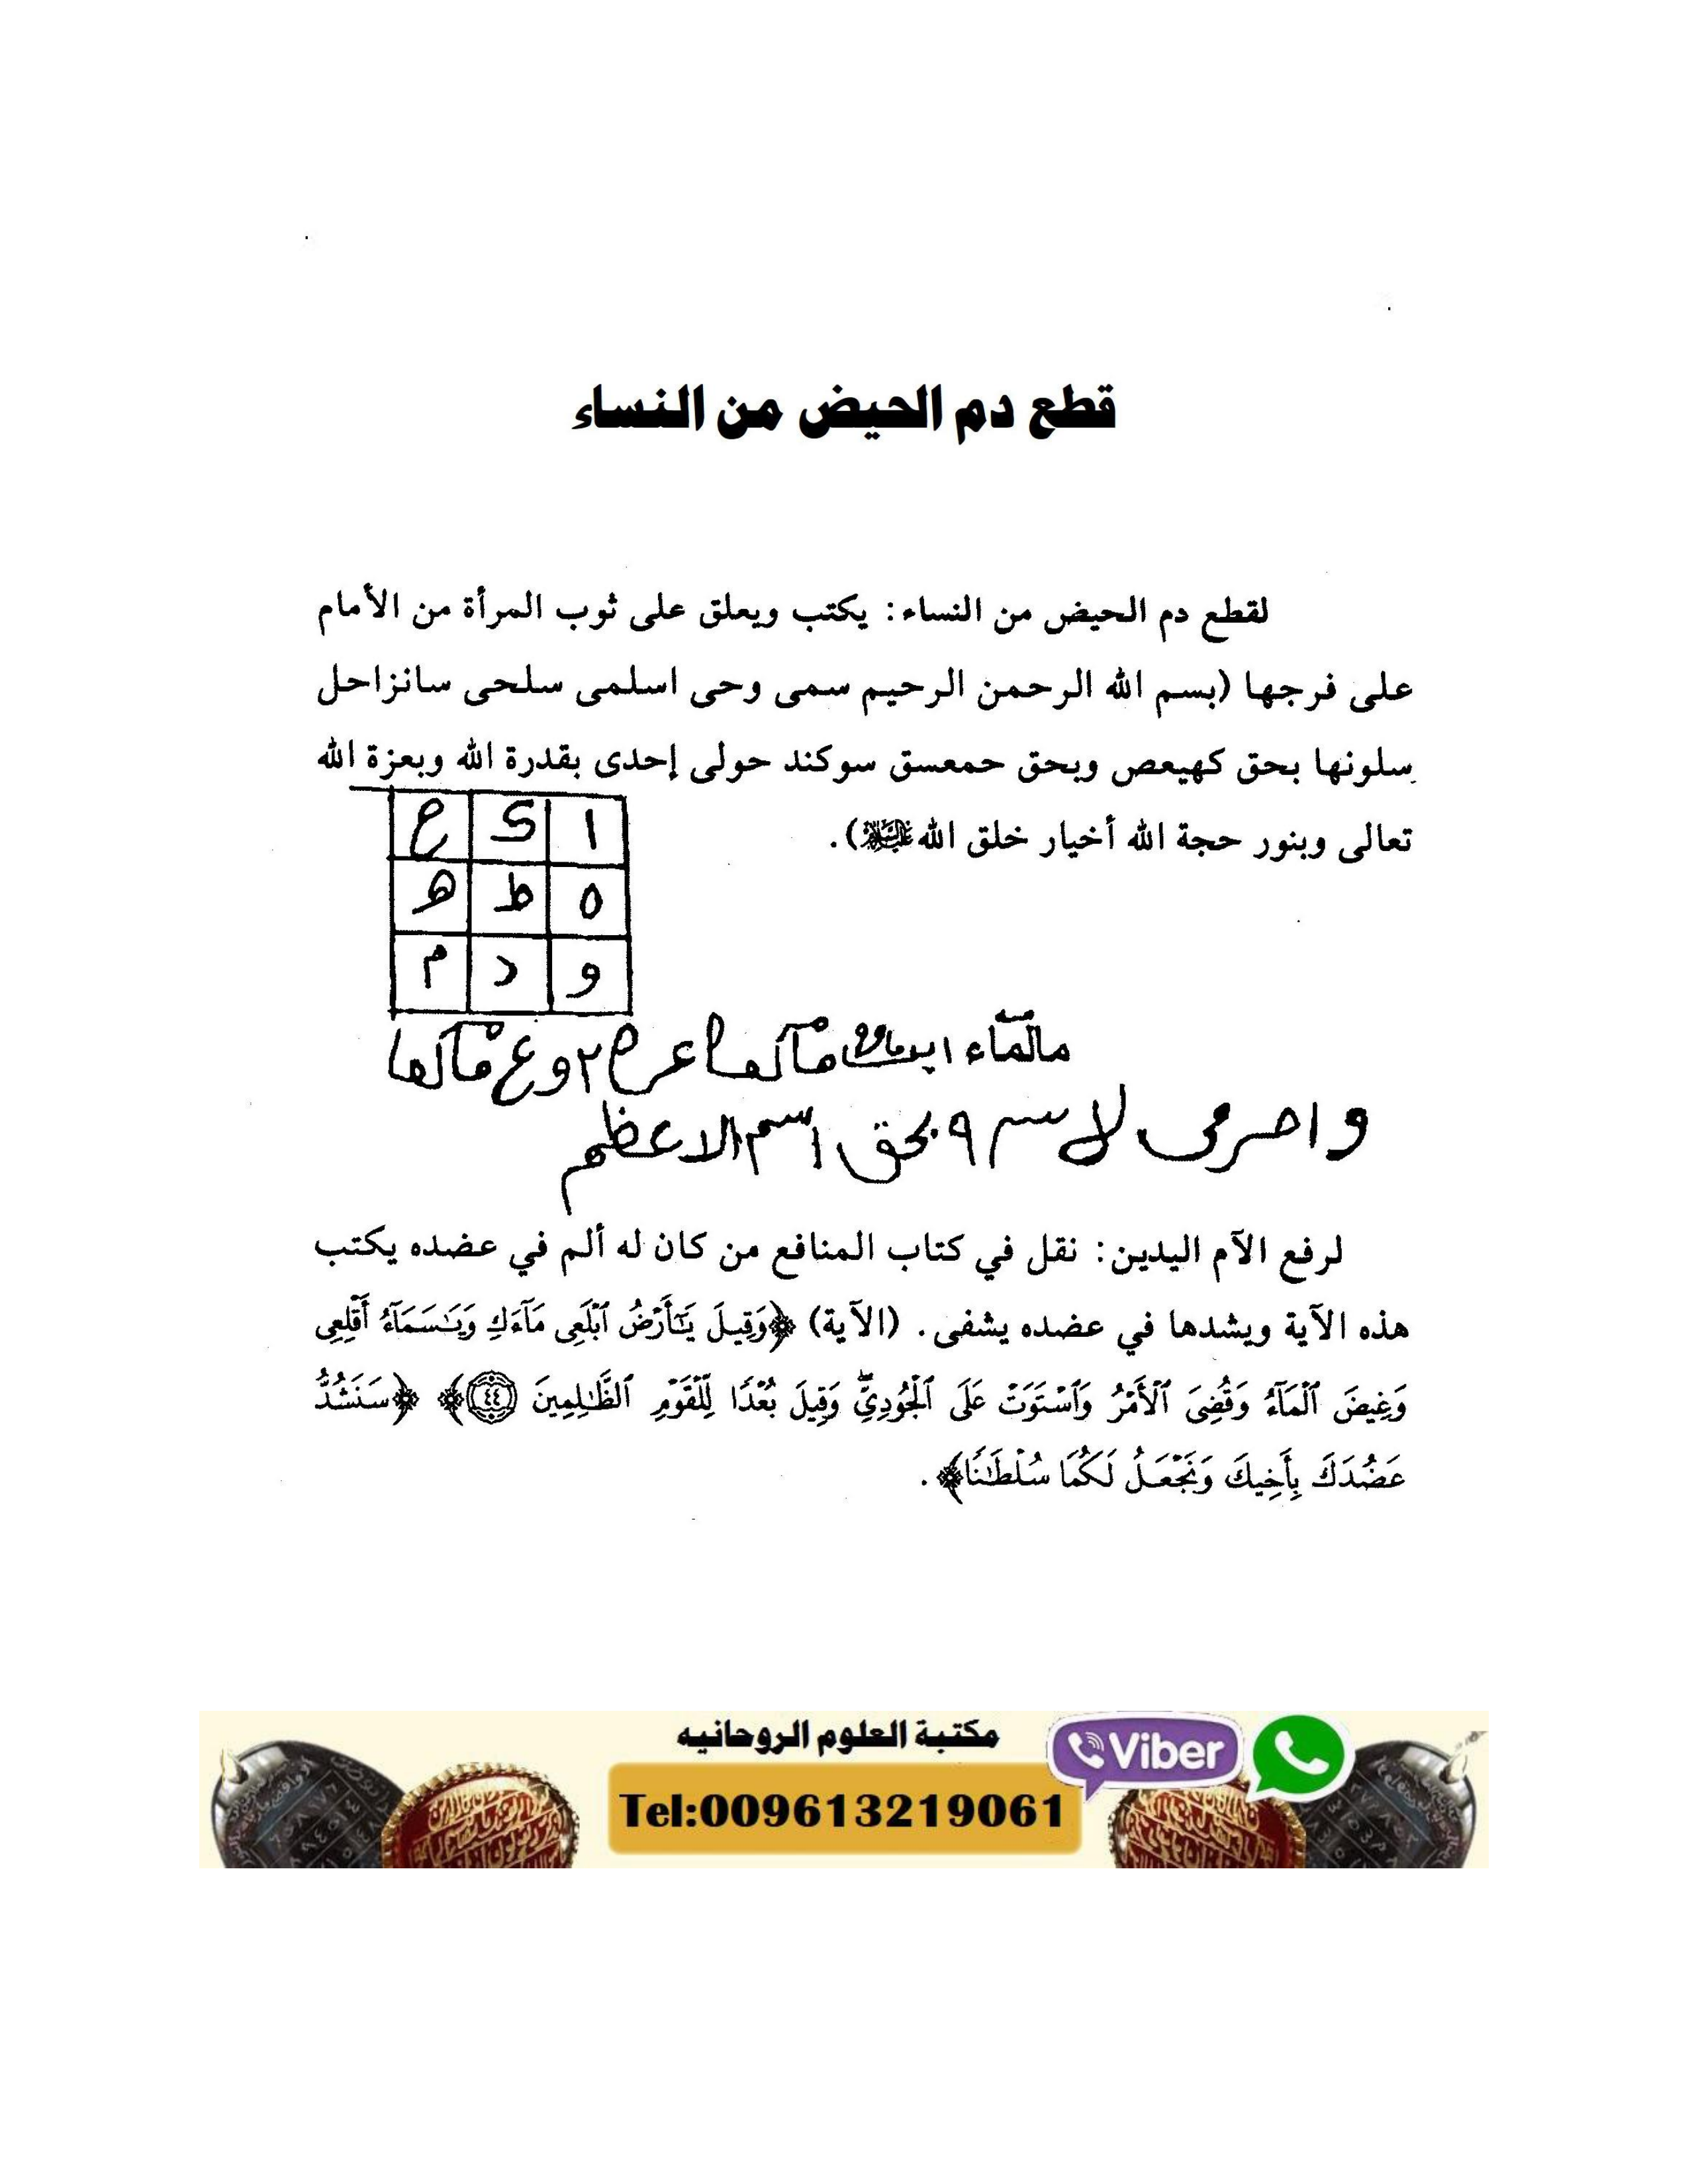 قطع دم الحيض من النساء
لقطع دم الحيض من النساء: يكتب ويعلق على ثوب المرأة من الأمام
على فرجها (بسم الله الرحمن الرحيم سمى وحى اسلمى سلحى سانزاحل
سلونها بحق كهيعص وبحق حمعسق سوكند حولى إحدى بقدرة الله وبعزة الله
تعالى وبنور حجة الله أخيار خلق الله ﷺ).
ا ك ع
٥ ط ھ
و د م
بحق اسم الاعظم
لرفع الآم اليدين: نقل في كتاب المنافع من كان له ألم في عضده يكتب
هذه الآية ويشدها في عضده يشفى. (الآية) ﴿وَقِيلَ يَٰٓأَرْضُ ٱبْلَعِى مَآءَكِ وَيَٰسَمَآءُ أَقْلِعِى
وَغِيضَ ٱلْمَآءُ وَقُضِىَ ٱلْأَمْرُ وَٱسْتَوَتْ عَلَى ٱلْجُودِىِّ ۖ وَقِيلَ بُعْدًا لِّلْقَوْمِ ٱلظَّٰلِمِينَ ٤٤﴾ ﴿سَنَشُدُّ
عَضُدَكَ بِأَخِيكَ وَنَجْعَلُ لَكُمَا سُلْطَٰنًا﴾.
مكتبة العلوم الروحانيه
Viber
Tel:009613219061